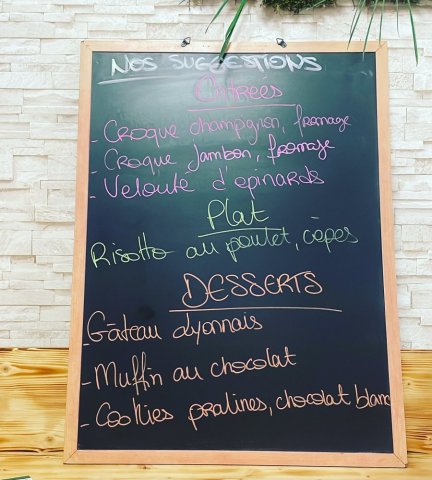 NOS SUGGESTIONS
Entrées
- Croque champignon, fromage
- Croque Jambon, fromage
- Velouté d'epinards
Plat
Risotto au poulet, cèpes
DESSERTS
- Gâteau Lyonnais
- Muffin au chocolat
- Cookies pralines, chocolat blanc